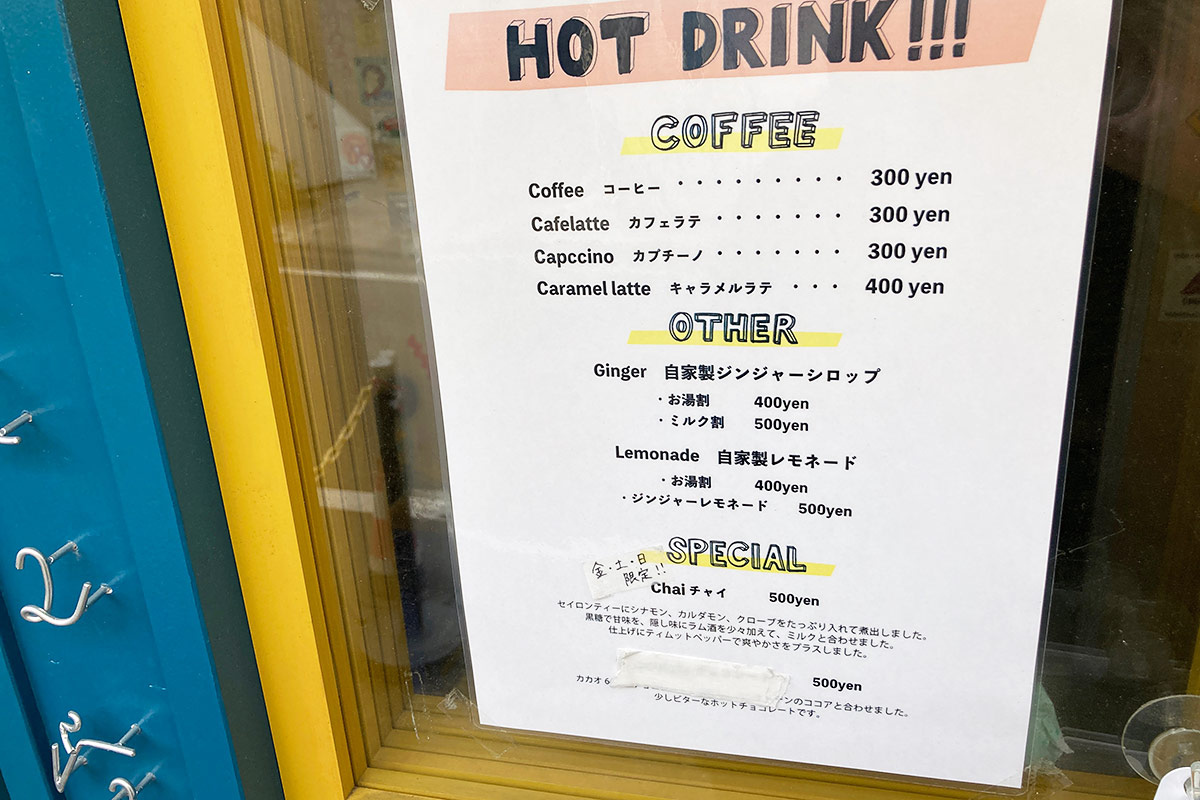 HOT DRINK!!!
COFFEE
Coffee コーヒー ・・・・・・・・・ 300 yen
Cafelatte カフェラテ ・・・・・・・ 300 yen
Capccino カプチーノ ・・・・・・・ 300 yen
Caramel latte キャラメルラテ ・・・ 400 yen
OTHER
Ginger 自家製ジンジャーシロップ
・お湯割 400yen
・ミルク割 500yen
Lemonade 自家製レモネード
・お湯割 400yen
・ジンジャーレモネード 500yen
SPECIAL
金・土・日
限定!!
Chai チャイ 500yen
セイロンティーにシナモン、カルダモン、クローブをたっぷり入れて煮出しました。
黒糖で甘味を、隠し味にラム酒を少々加えて、ミルクと合わせました。
仕上げにティムットペッパーで爽やかさをプラスしました。
500yen
カカオ 6 ンのココアと合わせました。
少しビターなホットチョコレートです。